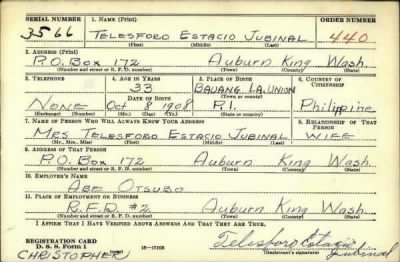 SERIAL NUMBER 1. NAME (Print) ORDER NUMBER
3566 TELESFORO ESTACIO JUBINAL 440
(First) (Middle) (Last)
2. ADDRESS (Print)
P.O. BOX 172 Auburn King Wash.
(Number and street or R. F. D. number) (Town) (County) (State)
3. TELEPHONE 4. AGE IN YEARS 5. PLACE OF BIRTH 6. COUNTRY OF CITIZENSHIP
33 BAUANG, LA. UNION
DATE OF BIRTH (Town or county)
NONE Oct 8 1908 P.I. Philippine
(Exchange) (Number) (Mo.) (Day) (Yr.) (State or country)
7. NAME OF PERSON WHO WILL ALWAYS KNOW YOUR ADDRESS 8. RELATIONSHIP OF THAT PERSON
MRS TELESFORO ESTACIO JUBINAL WIFE
(Mr., Mrs., Miss) (First) (Middle) (Last)
9. ADDRESS OF THAT PERSON
P.O. BOX 172 Auburn King Wash.
(Number and street or R. F. D. number) (Town) (County) (State)
10. EMPLOYER'S NAME
ABE OTSUBO
11. PLACE OF EMPLOYMENT OR BUSINESS
R.F.D. #2 Auburn King Wash.
(Number and street or R. F. D. number) (Town) (County) (State)
I AFFIRM THAT I HAVE VERIFIED ABOVE ANSWERS AND THAT THEY ARE TRUE.
REGISTRATION CARD
D. S. S. Form 1 Telesforo Estacio Jubinal
CHRISTOPHER (Registrant's signature)